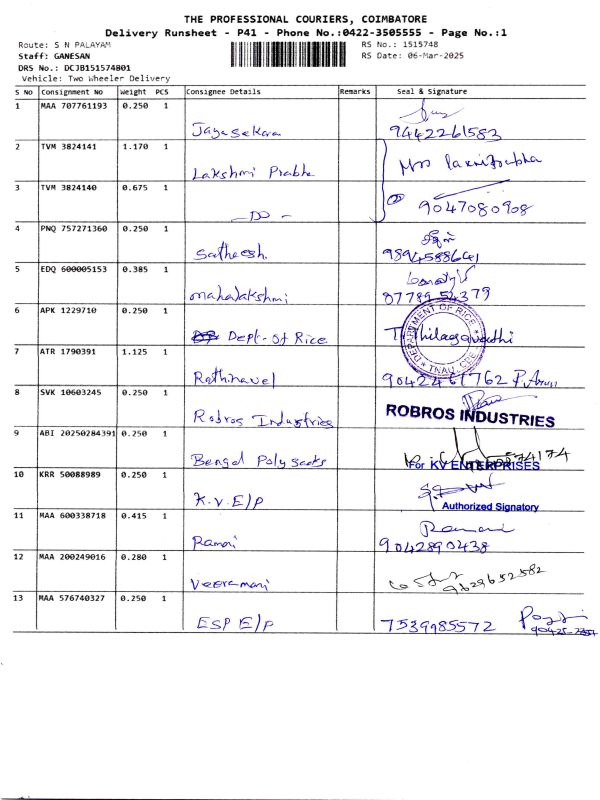 THE PROFESSIONAL COURIERS, COIMBATORE
Delivery Runsheet - P41 - Phone No.:0422-3505555 - Page No.:1
Route: S N PALAYAM
RS No.: 1515748
Staff: GANESAN
RS Date: 06-Mar-2025
DRS No.: DCJB151574801
Vehicle: Two Wheeler Delivery
S No Consignment No Weight PCS Consignee Details Remarks Seal & Signature
1 MAA 707761193 0.250 1
Jayasekara 9442261583
2 TVM 3824141 1.170 1
Lakshmi Prabha
3 TVM 3824140 0.675 1
-DO- 9047080908
4 PNQ 757271360 0.250 1
Satheesh 9894588641
5 EDQ 600005153 0.385 1
Mahalakshmi 07789 54379
6 APK 1229710 0.250 1
Dept-of Rice Thilagavathi
DEPARTMENT OF RICE
TNAU, CBE
7 ATR 1790391 1.125 1
Rathinavel 9042461762
8 SVK 10603245 0.250 1
Robros Industries ROBROS INDUSTRIES
9 ABI 20250284391 0.250 1
Bengal Poly sacks For KV ENTERPRISES
10 KRR 50088989 0.250 1
K.V.E/P Authorized Signatory
11 MAA 600338718 0.415 1
Ramani Ramani
9042890438
12 MAA 200249016 0.280 1
Veeramani 9629652582
13 MAA 576740327 0.250 1
ESP E/P 7539985572